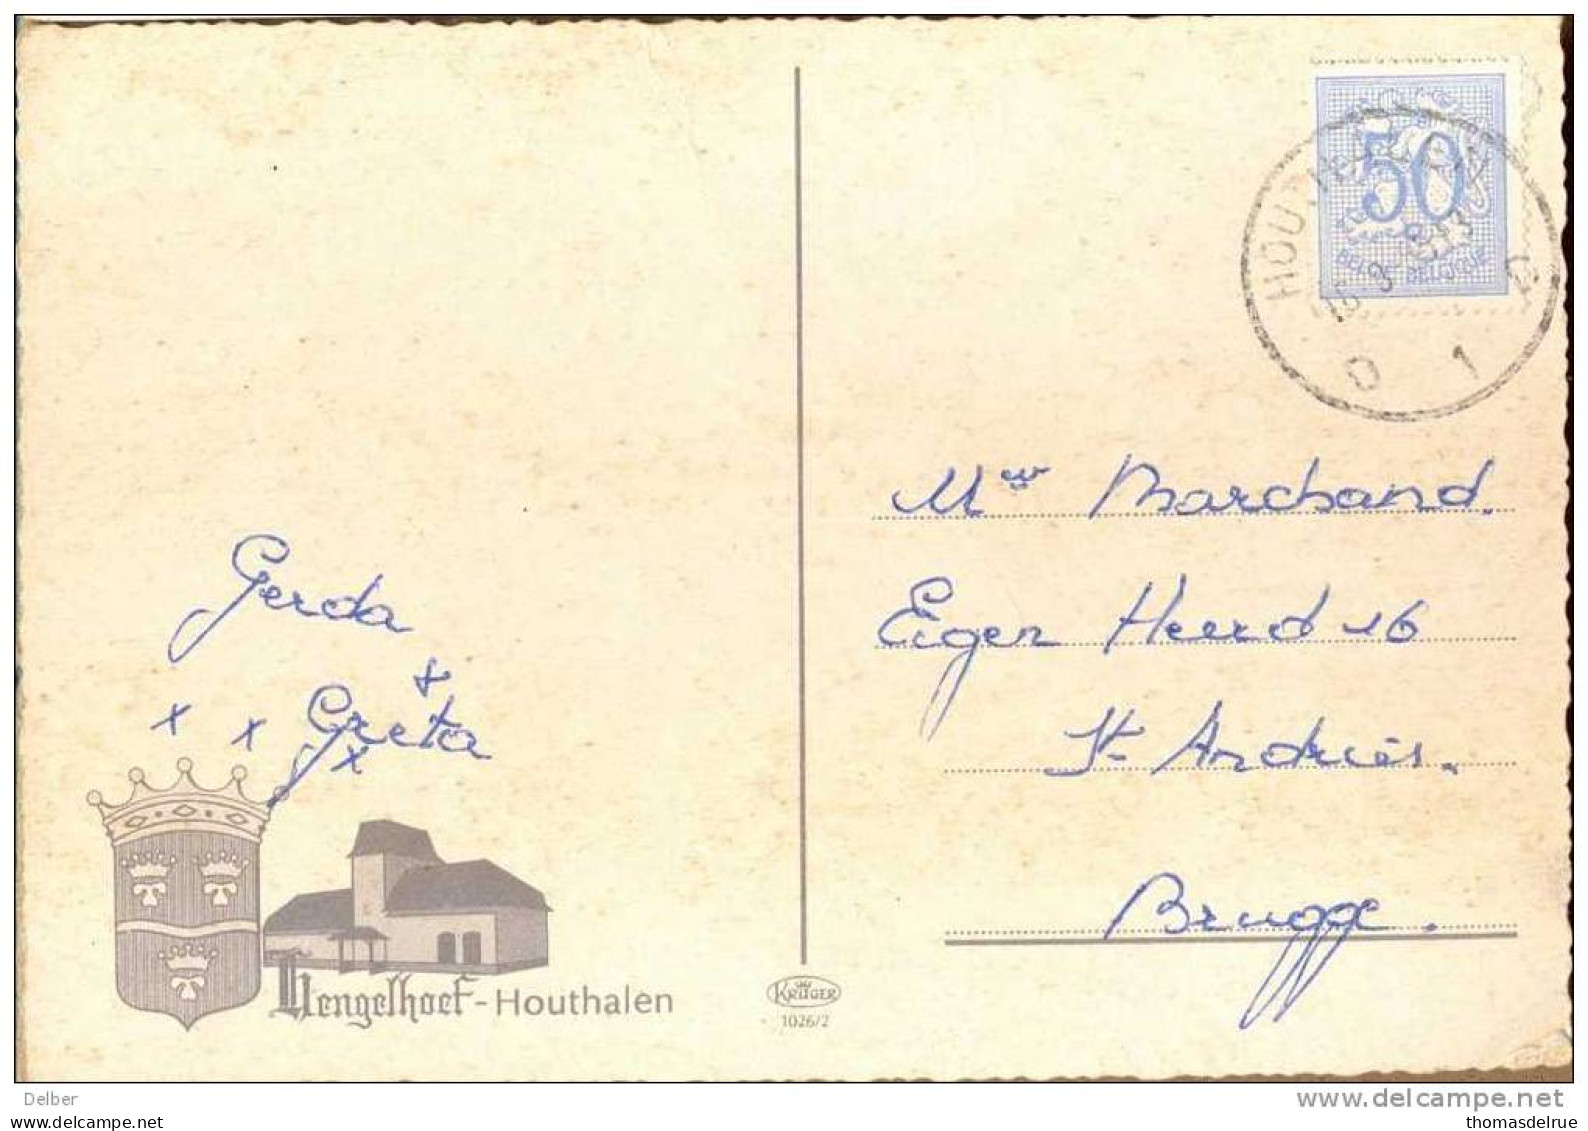 50
BELGIE-BELGIQUE
HOUTHALEN
D 1
Mevr Marchand.
Eigen Heerd 16
St-Andries.
Brugge.
Gerda
&
x x Greta
x
Hengelhoef - Houthalen
KRÜGER
1026/2
Delber
www.delcampe.net
postkaarten
thomasdelrue